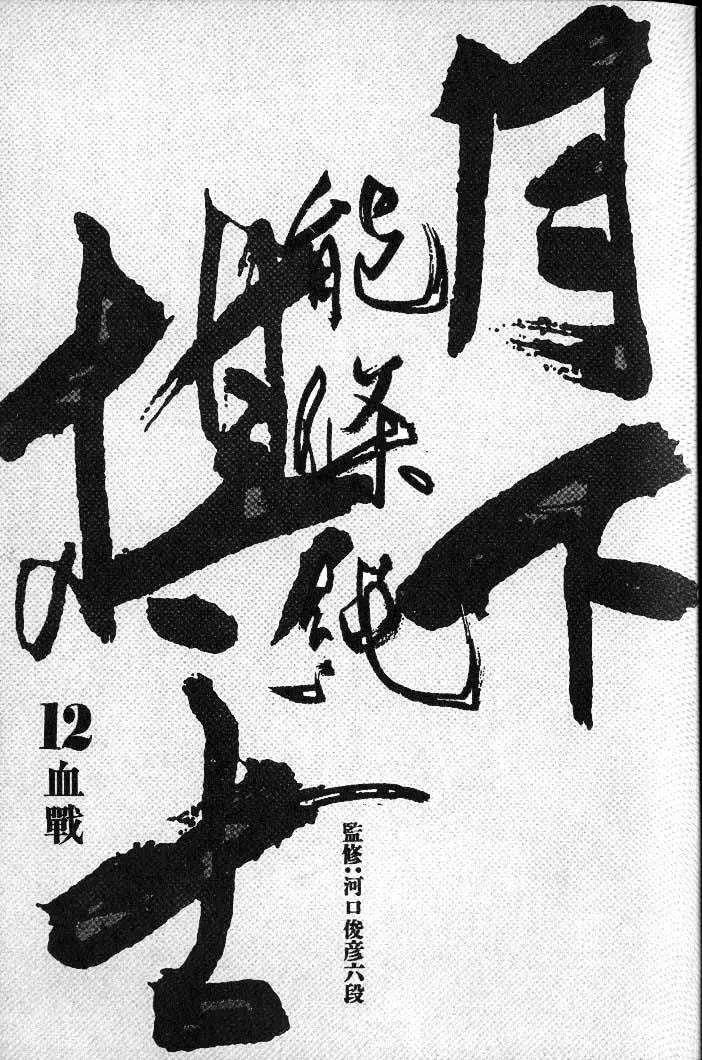 月下
棋士
能條純一
12
血戰
監修:河口俊彦六段